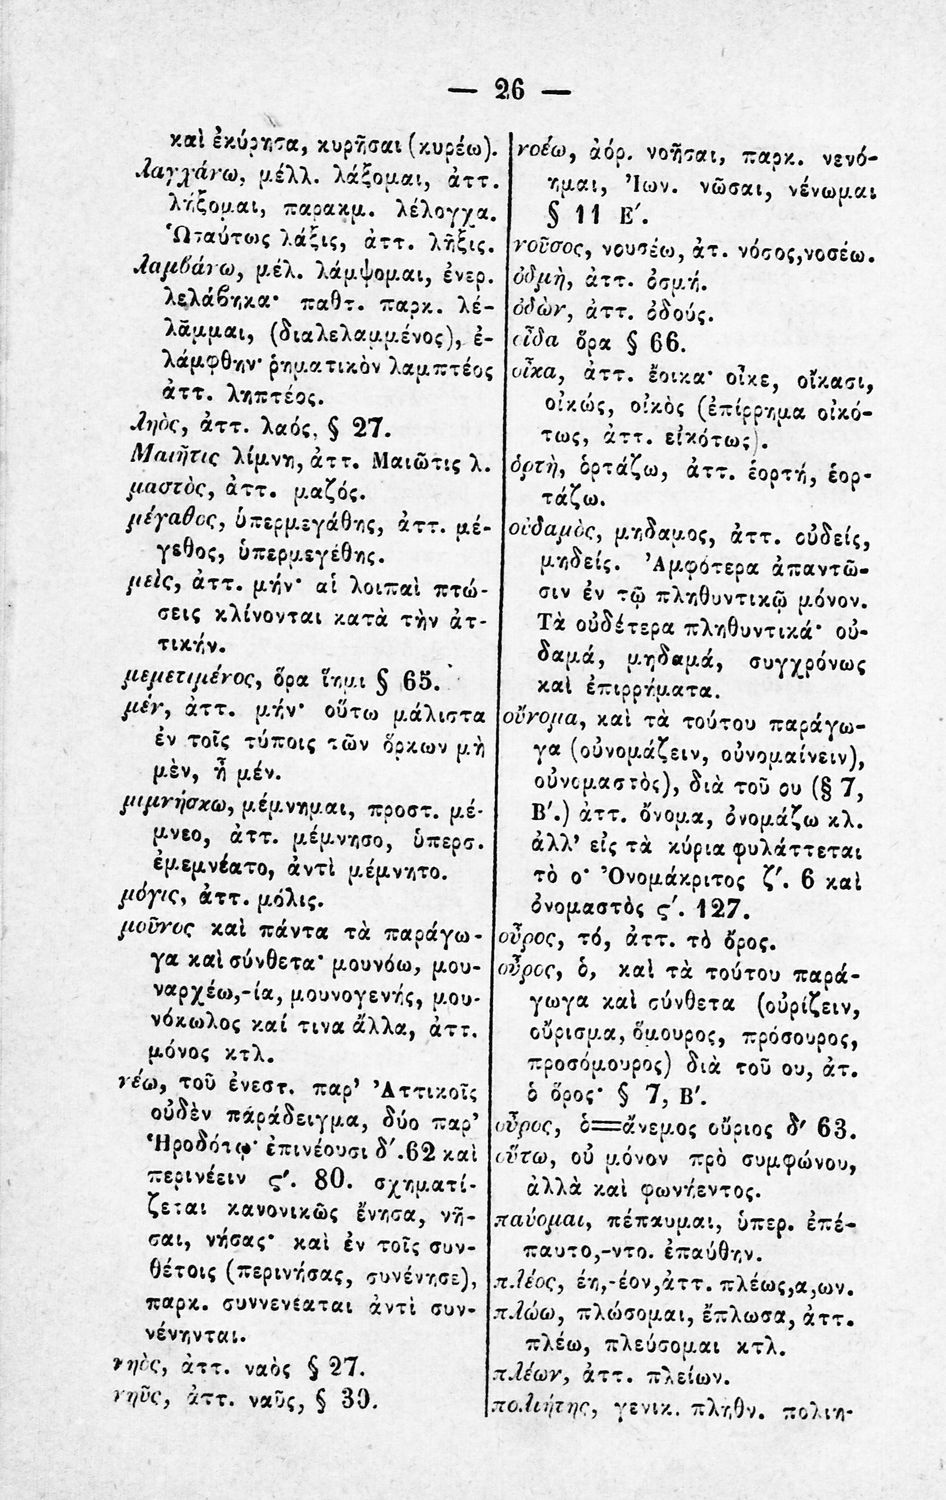 — 26 —
καὶ ἐκύρησα, κυρῆσαι (κυρέω).
λαγχάνω, μέλλ. λάξομαι, ἀττ.
λήξομαι, παρακμ. λέλογχα.
Ὡσαύτως λάξις, ἀττ. λῆξις.
λαμβάνω, μέλ. λάμψομαι, ἐνερ.
λελάβηκα· παθτ. παρκ. λέ-
λᾶμμαι, (διαλελαμμένος), ἐ-
λάμφθην· ῥηματικὸν λαμπτέος
ἀττ. ληπτέος.
ληὸς, ἀττ. λαός, § 27.
Μαιῆτις λίμνη, ἀττ. Μαιῶτις λ.
μαστὸς, ἀττ. μαζός.
μέγαθος, ὑπερμεγάθης, ἀττ. μέ-
γεθος, ὑπερμεγέθης.
μεὶς, ἀττ. μήν· αἱ λοιπαὶ πτώ-
σεις κλίνονται κατὰ τὴν ἀτ-
τικήν.
μεμετιμένος, ὅρα ἵημι § 65.
μέν, ἀττ. μήν· οὕτω μάλιστα
ἐν τοῖς τύποις τῶν ὅρκων μὴ
μὲν, ἦ μέν.
μιμνήσκω, μέμνημαι, προστ. μέ-
μνεο, ἀττ. μέμνησο, ὑπερσ.
ἐμεμνέατο, ἀντὶ μέμνητο.
μόγις, ἀττ. μόλις.
μοῦνος καὶ πάντα τὰ παράγω-
γα καὶ σύνθετα· μουνόω, μου-
ναρχέω,-ία, μουνογενής, μου-
νόκωλος καί τινα ἄλλα, ἀττ.
μόνος κτλ.
νέω, τοῦ ἐνεστ. παρ' Ἀττικοῖς
οὐδὲν παράδειγμα, δύο παρ'
Ἡροδότῳ· ἐπινέουσι δ'.62 καὶ
περινέειν ϛ'. 80. σχηματί-
ζεται κανονικῶς ἔνησα, νῆ-
σαι, νήσας· καὶ ἐν τοῖς συν-
θέτοις (περινήσας, συνένησε),
παρκ. συννενέαται ἀντὶ συν-
νένηνται.
νηὸς, ἀττ. ναὸς § 27.
νηῦς, ἀττ. ναῦς, § 39.
νοέω, ἀόρ. νοῆσαι, παρκ. νενό-
ημαι, Ἰων. νῶσαι, νένωμαι
§ 11 Ε'.
νοῦσος, νουσέω, ἀτ. νόσος,νοσέω.
ὀδμὴ, ἀττ. ὀσμή.
ὀδὼν, ἀττ. ὀδούς.
οἶδα ὅρα § 66.
οἶκα, ἀττ. ἔοικα· οἶκε, οἴκασι,
οἰκώς, οἰκὸς (ἐπίρρημα οἰκό-
τως, ἀττ. εἰκότως).
ὁρτὴ, ὁρτάζω, ἀττ. ἑορτή, ἑορ-
τάζω.
οὐδαμὸς, μηδαμος, ἀττ. οὐδείς,
μηδείς. Ἀμφότερα ἀπαντῶ-
σιν ἐν τῷ πληθυντικῷ μόνον.
Τὰ οὐδέτερα πληθυντικά· οὐ-
δαμά, μηδαμά, συγχρόνως
καὶ ἐπιρρήματα.
οὔνομα, καὶ τὰ τούτου παράγω-
γα (οὐνομάζειν, οὐνομαίνειν),
οὐνομαστὸς), διὰ τοῦ ου (§ 7,
Β'.) ἀττ. ὄνομα, ὀνομάζω κλ.
ἀλλ' εἰς τὰ κύρια φυλάττεται
τὸ ο· Ὀνομάκριτος ζ'. 6 καὶ
ὀνομαστὸς ϛ'. 127.
οὖρος, τό, ἀττ. τὸ ὄρος.
οὖρος, ὁ, καὶ τὰ τούτου παρά-
γωγα καὶ σύνθετα (οὐρίζειν,
οὔρισμα, ὅμουρος, πρόσουρος,
προσόμουρος) διὰ τοῦ ου, ἀτ.
ὁ ὅρος· § 7, Β'.
οὖρος, ὁ=ἄνεμος οὔριος δ' 63.
οὕτω, οὐ μόνον πρὸ συμφώνου,
ἀλλὰ καὶ φωνήεντος.
παύομαι, πέπαυμαι, ὑπερ. ἐπέ-
παυτο,-ντο. ἐπαύθην.
πλέος, έη,-έον,ἀττ. πλέως,α,ων.
πλώω, πλώσομαι, ἔπλωσα, ἀττ.
πλέω, πλεύσομαι κτλ.
πλέων, ἀττ. πλείων.
πολιήτης, γενικ. πληθν. πολιη-